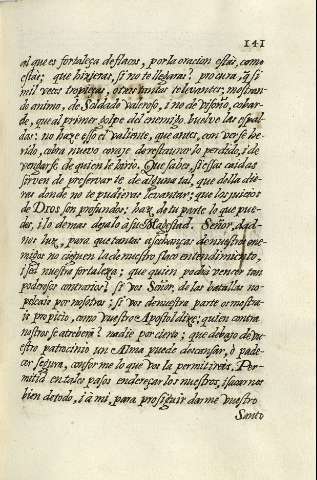 141
al que es fortaleça de flacos, por la oracion estàs, como
estàs; que hizieras, si no te llegaras? procura, q̃ si
mil veces tropieças, otras tantas te levantes; mostran-
do animo, de Soldado valeroso, i no de visoño, cobar-
de, que al primer golpe del enemigo, buelve las espal-
das: no haze esso el valiente, que antes, con verse he-
rido, cobra nuevo coraje de restaurar lo perdido, i de
vengarse de quien le hirio. Que sabes, si essas caidas
sirven de preservarte de alguna tal, que della die-
ras donde no te pudieras levantar; que los juicios
de Dios son profundos; haz de tu parte lo que pue-
des, i lo demas dejalo à su Magestad. Señor, dad-
nos luz, para que tantas assechanças de nuestros ene-
migos no cieguen la de nuestro flaco entendimiento,
i sed nuestra fortaleza; que quien podrà vencer tan
poderosos contrarios? si vos Señor, de las batallas no
peleais por nosotros; i si vos de nuestra parte os mostra-
is propicio, como vuestro Apostol dixo; quien contra
nosotros se atreberà? nadie por cierto; que debajo de vue-
stro patrocinio un Alma puede descansar, ò pade-
cer segura, conforme lo que vos la permitireis. Per-
mitid en tales pasos endereçar los nuestros, i sacarnos
bien de todo, i à mi, para proseguir dar me vuestro
Santo